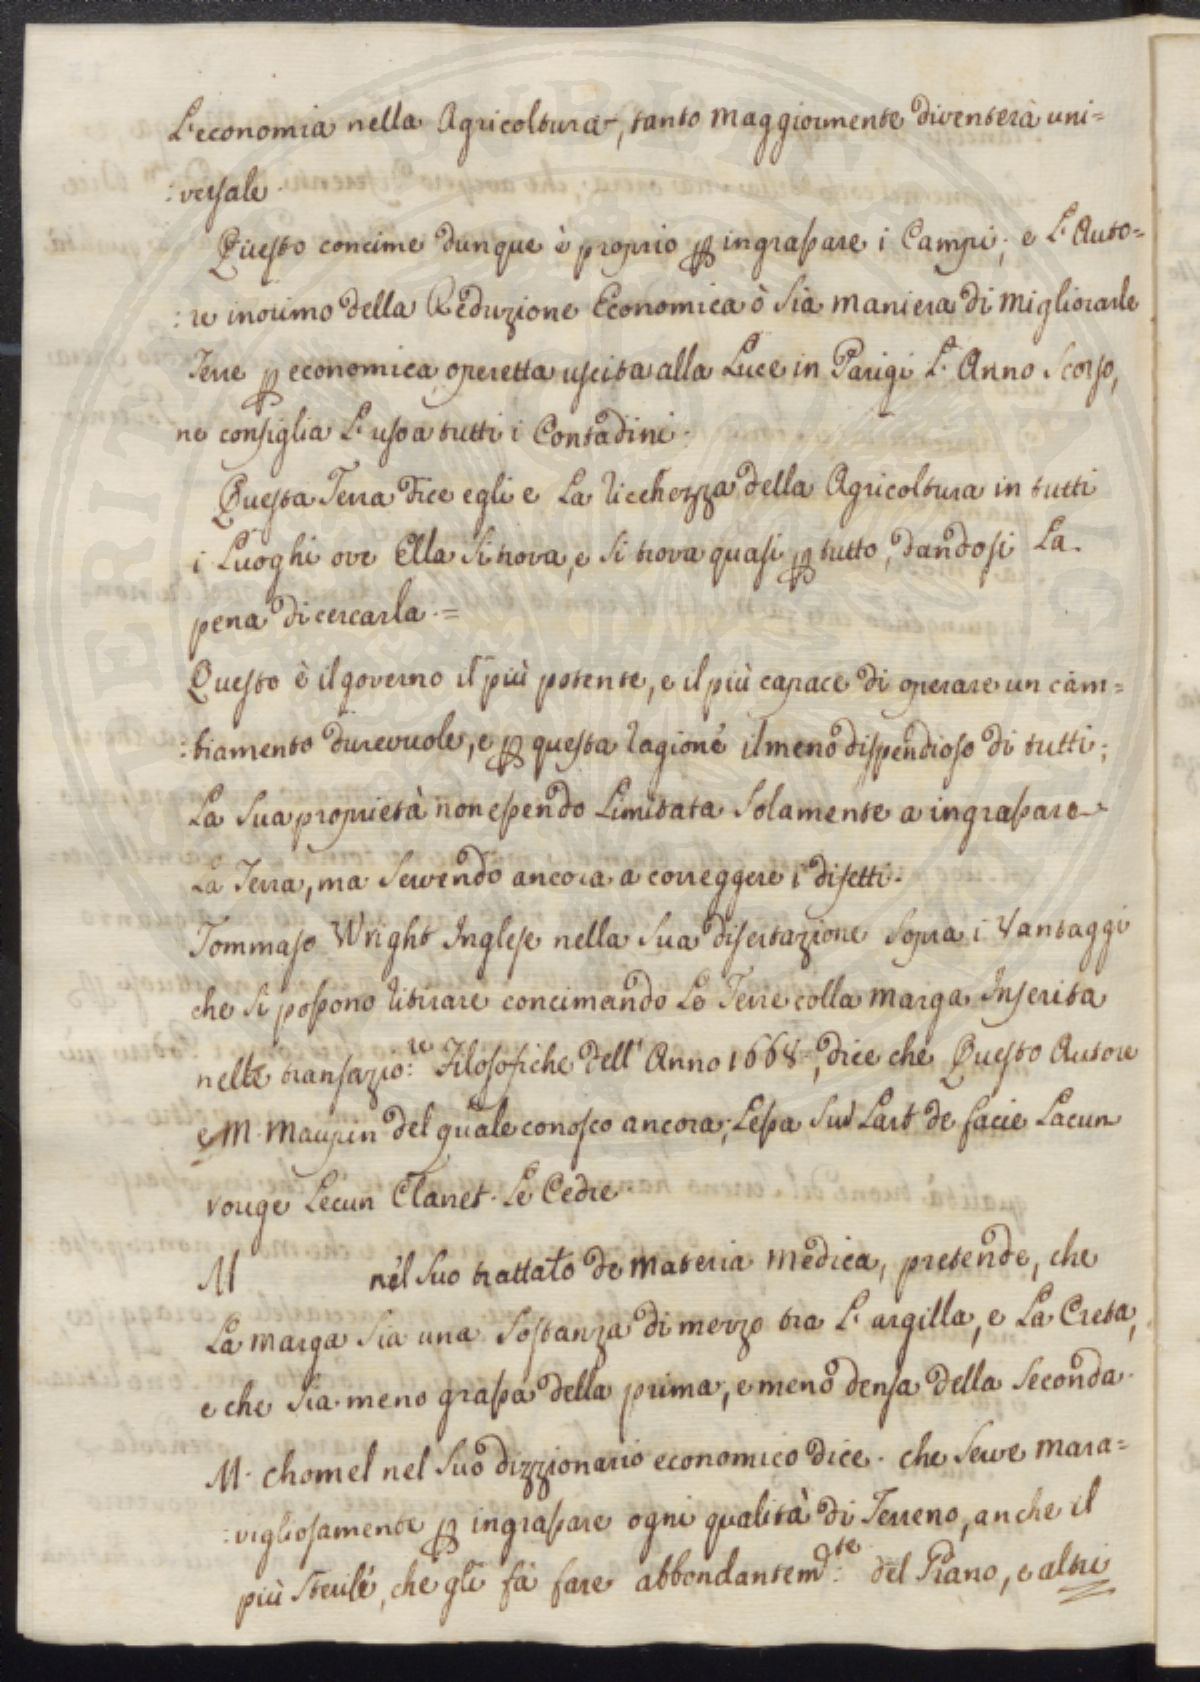 L'economia nella Agricoltura, tanto maggiormente diventerà uni=
:versale.
Questo concime dunque è proprio per ingrassare i Campi; e L'Auto=
:re inonimo della Reduzione Economica ò sia maniera di migliorarle
Terre per economica operetta uscita alla Luce in Parigi L'Anno scorso,
ne consiglia L'uso a tutti i Contadini.
Questa Terra dice egli e La ricchezza della Agricoltura in tutti
i Luoghi ove Ella si trova, e si trova quasi per tutto, dandosi La
pena di cercarla.=
Questo è il governo il più potente, e il più capace di operare un cam=
:biamento durevuole, e per questa ragione il meno dispendioso di tutti;
La sua proprietà non essendo Limitata solamente a ingrassare
La Terra, ma servendo ancora a correggere i difetti.
Tommaso Wright Inglese nella sua disertazione sopra i Vantaggi
che si possono ritirare concimando Le Terre colla marga Inserita
nelle transazio:re Filosofiche dell'Anno 1668, dice che Questo Autore
e M. Maupin del quale conosco ancora; Lessa sur Lart de facie Lacun
rouge Lecun Clanet. Le Cedre
M nel suo trattato de materia medica, pretende, che
La marga sia una sostanza di mezzo tra L'argilla, e La Creta,
e che sia meno grassa della prima, e meno densa della seconda.
M. Chomel nel suo dizzionario economico dice. che serve mara=
:vigliosamente per ingrassare ogni qualità di Terreno, anche il
più sterile, che gli fà fare abbondantem:te del Grano, e altri